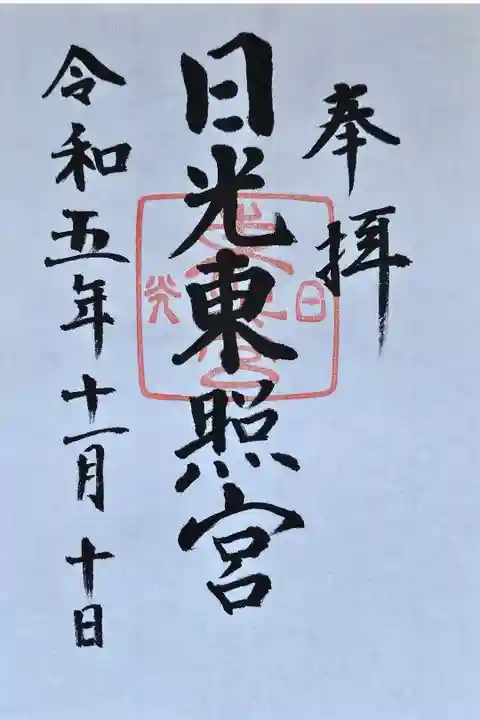 奉拝
日光東照宮
令和五年十一月十日